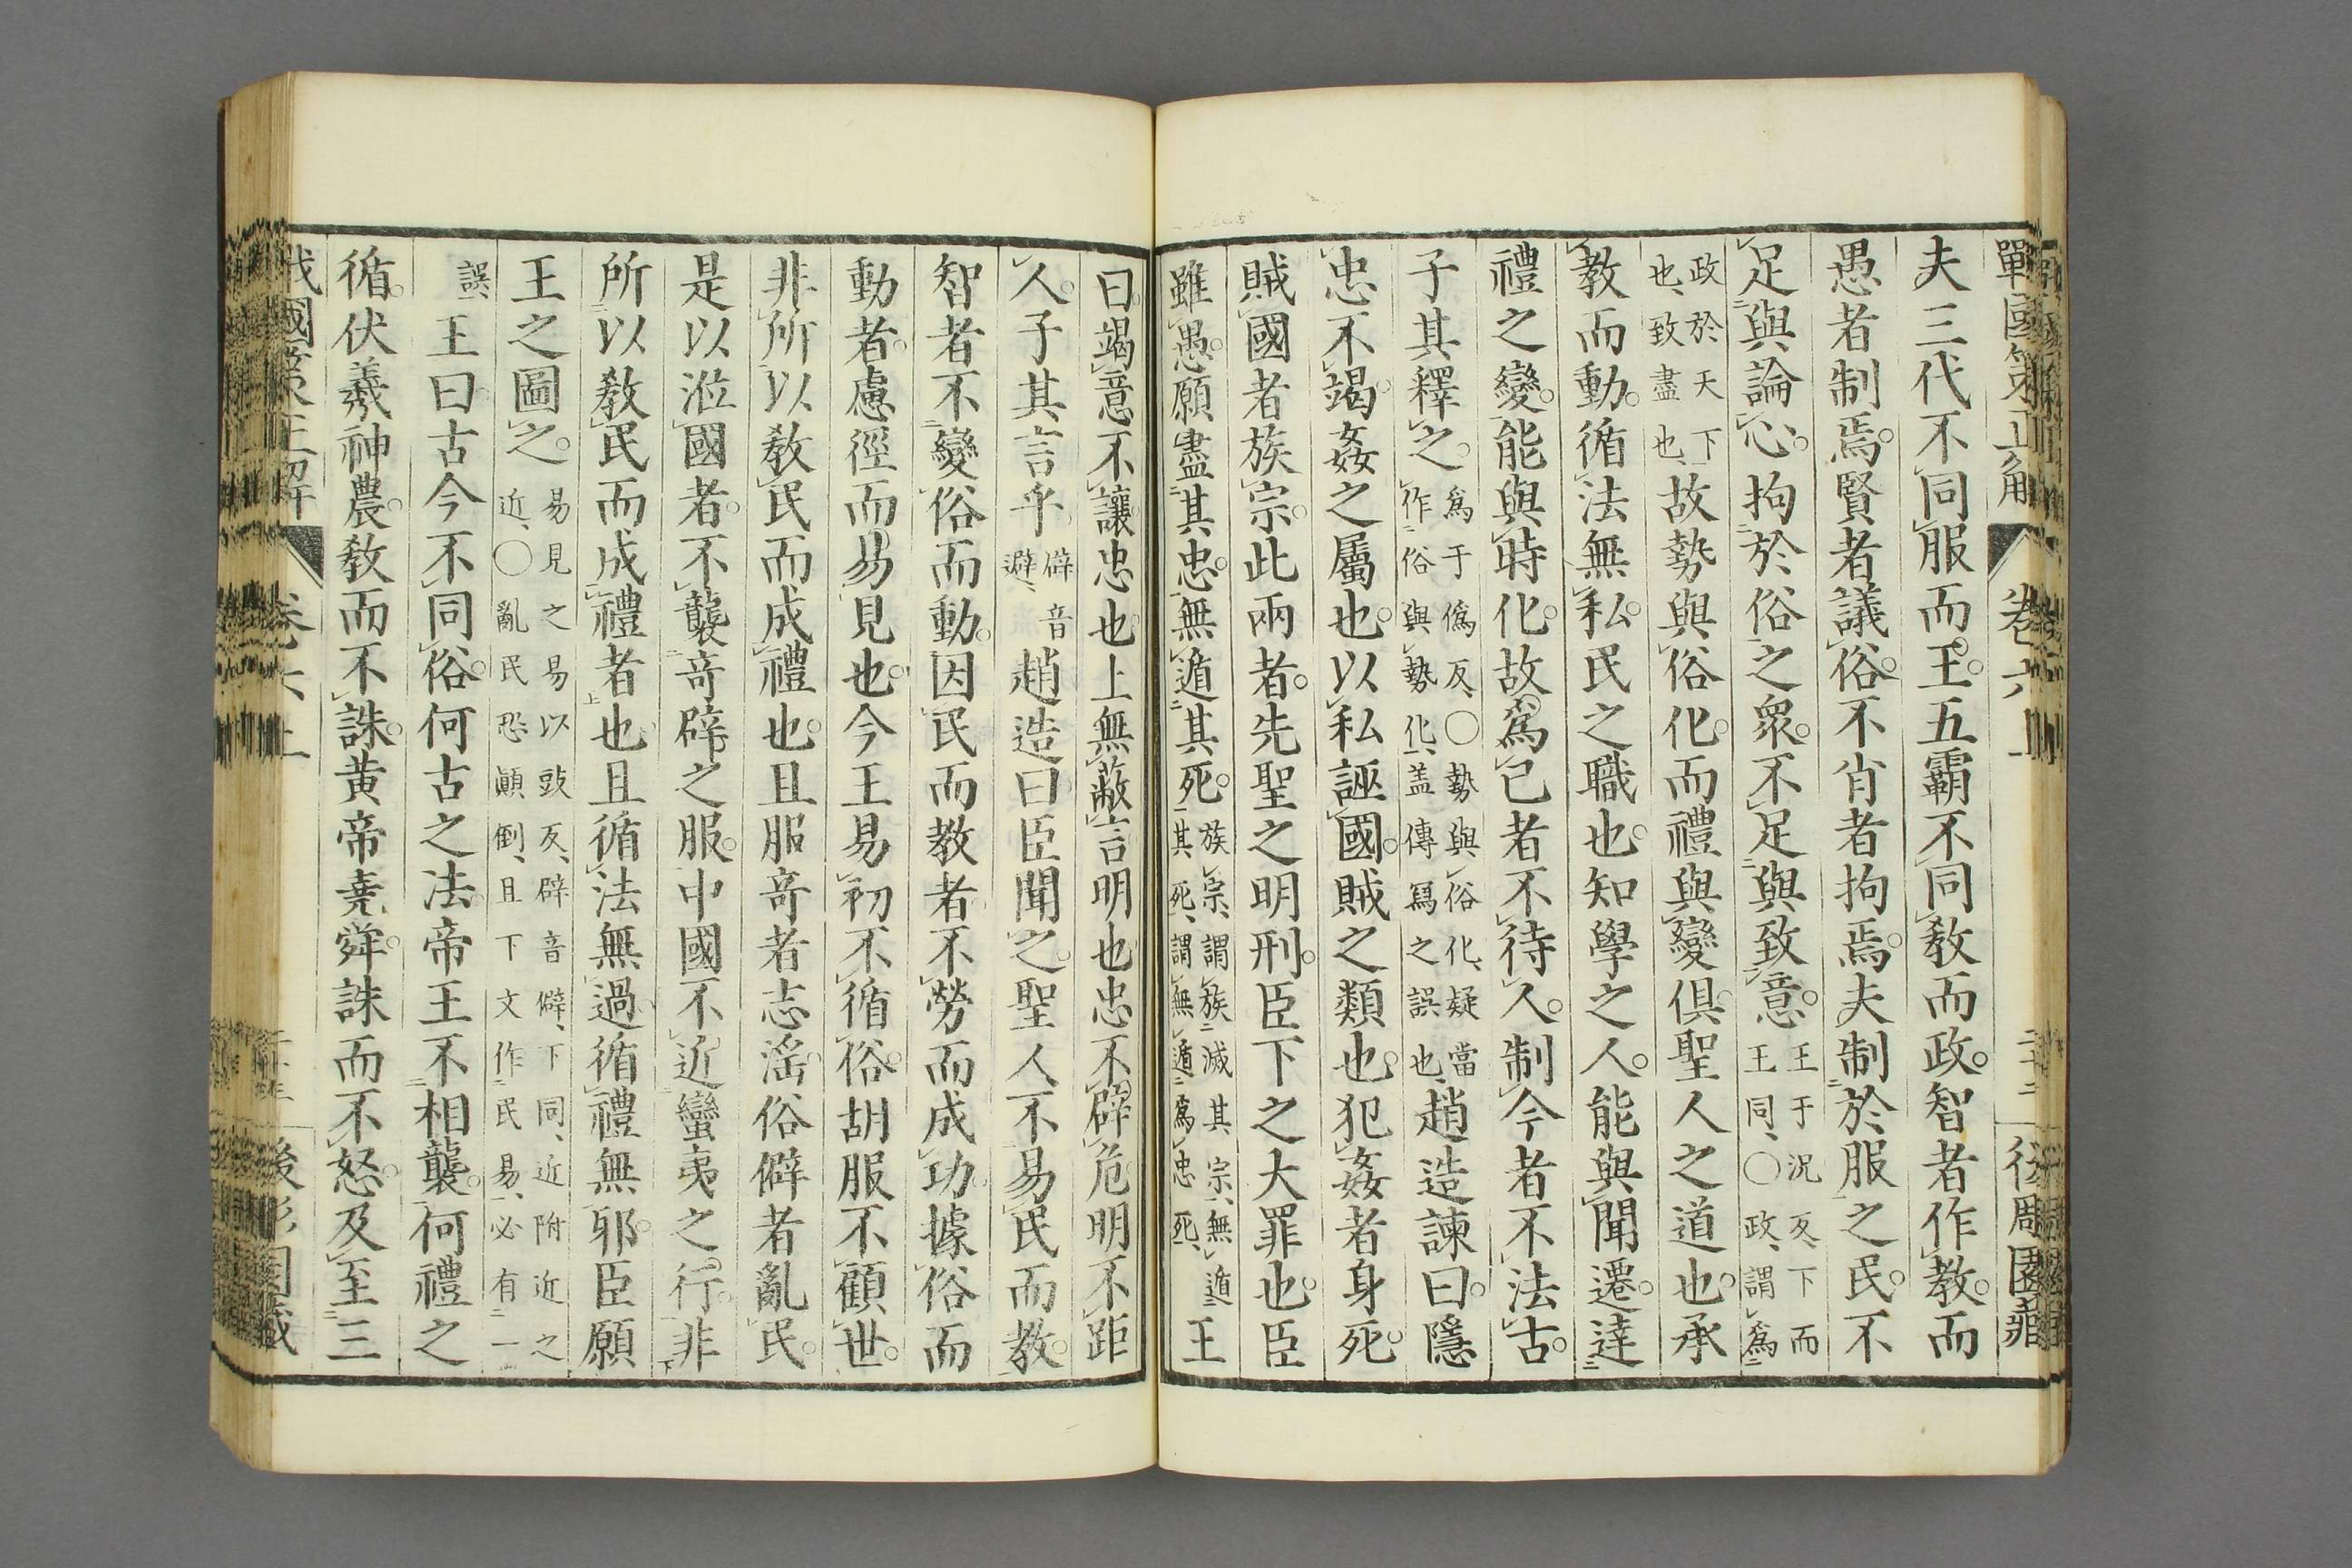 戰國策正解 卷六上 後彫園藏
夫三代不同服而王五霸不同教而政智者作教而
愚者制焉賢者議俗不肖者拘焉夫制於服之民不
足與論心拘於俗之衆不足與致意王于況反下而王同○政謂爲
政於天下也致盡也故勢與俗化而禮與變俱聖人之道也承
教而動循法無私民之職也知學之人能與聞遷達
禮之變能與時化故爲己者不待人制今者不法古
子其釋之爲于僞反○勢與俗化疑當作俗與勢化蓋傳寫之誤也趙造諫曰隱
忠不竭姦之屬也以私誣國賊之類也犯姦者身死
賊國者族宗此兩者先聖之明刑臣下之大罪也臣
雖愚願盡其忠無遁其死族宗謂族滅其宗無遁其死謂無遁爲忠死王
曰竭意不讓忠也上無蔽言明也忠不辟危明不距
人子其言乎辟音避趙造曰臣聞之聖人不易民而教
智者不變俗而動因民而教者不勞而成功據俗而
動者慮徑而易見也今王易初不循俗胡服不顧世
非所以教民而成禮也且服奇者志淫俗僻者亂民
是以涖國者不襲奇辟之服中國不近蠻夷之行非
所以教民而成禮者也且循法無過循禮無邪臣願
王之圖之易見之易以豉反辟音僻下同近附近之近○亂民恐顚倒且下文作民易必有一
誤王曰古今不同俗何古之法帝王不相襲何禮之
循伏羲神農教而不誅黄帝堯舜誅而不怒及至三
戰國策正解 卷六上 二十三 後彫園藏